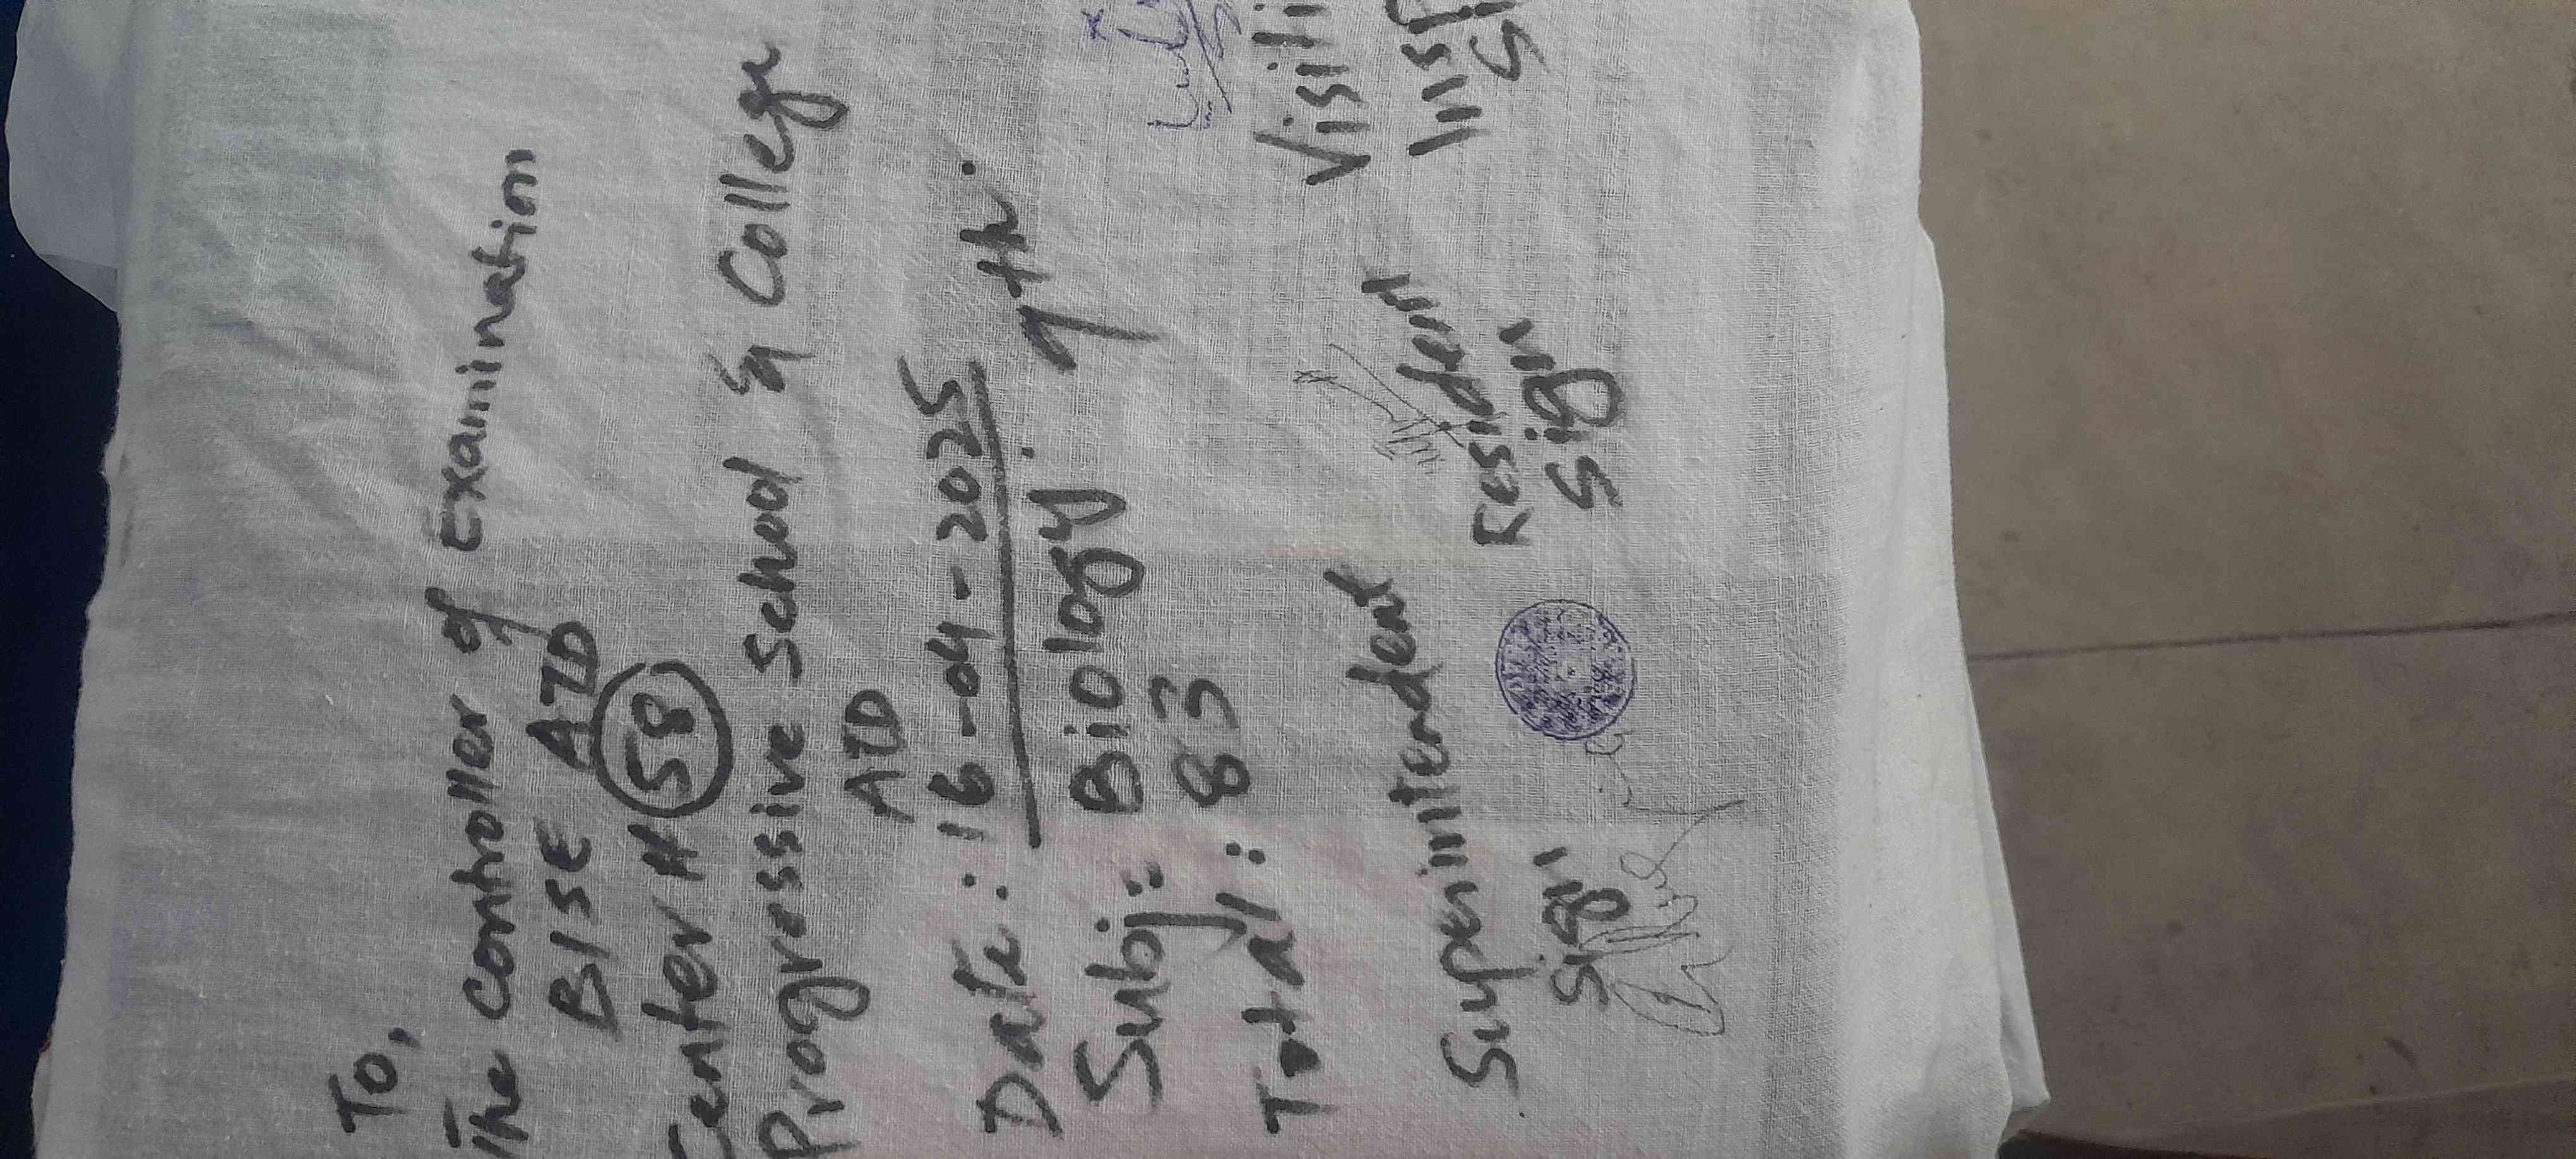 To,
The controller of Examination
BISE ATD
Center # 58
Progressive school & College
ATD
Date: 16-04-2025
Subj: Biology. 9th.
Total: 83
Superintendent
Sign
Resident
Sign